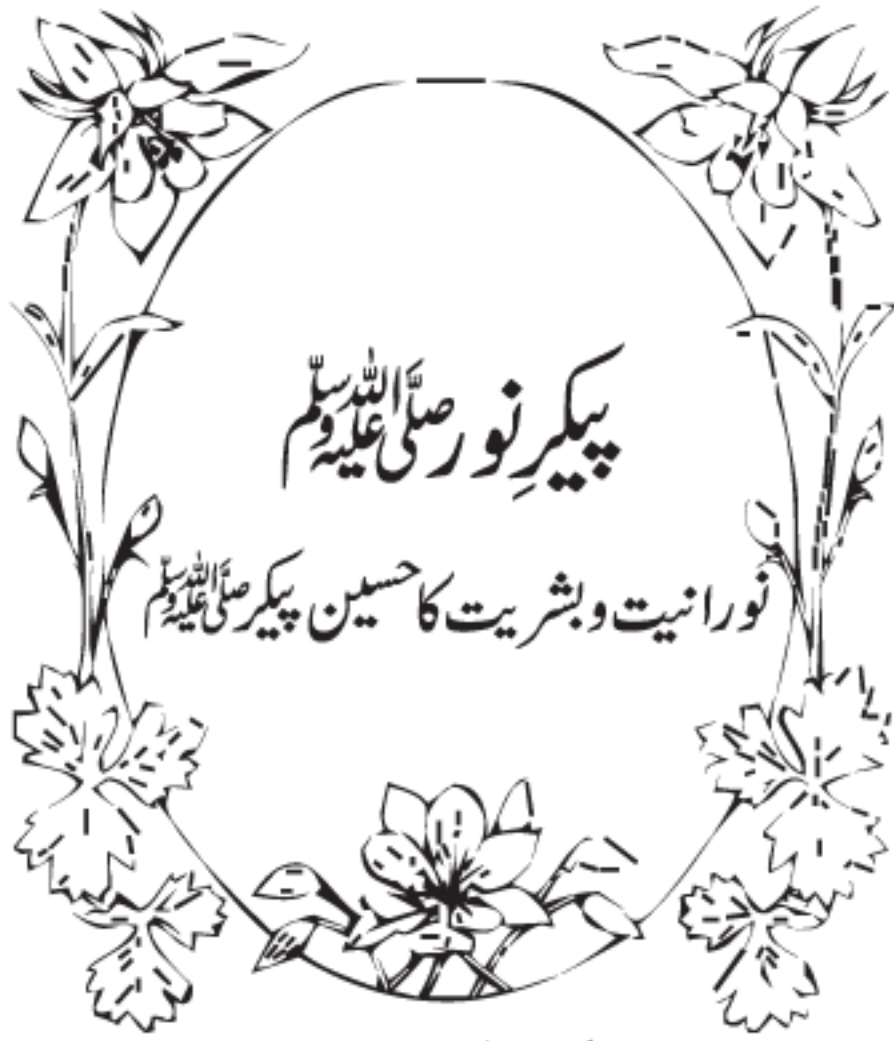 پیکرِ نور صلی اللہ علیہ وسلم
نورانیت و بشریت کا حسین پیکر صلی اللہ علیہ وسلم